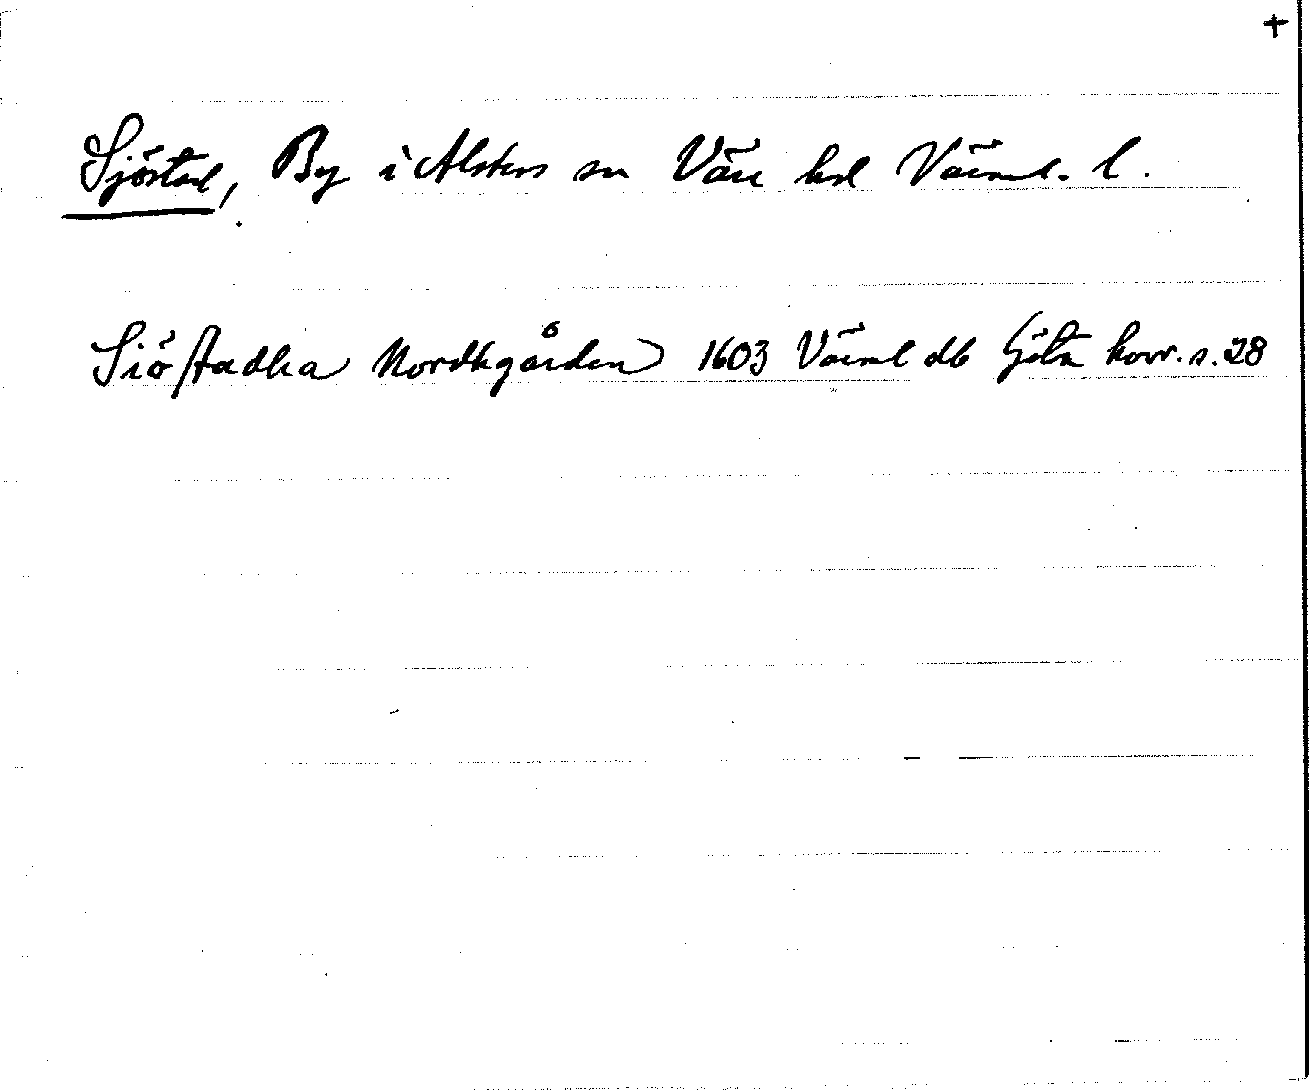 +
Sjöstad, By i Alsters sn Väse hd Värml. l.
Siöstadha Nordhgården 1603 Värml db Göta hovr. s. 28